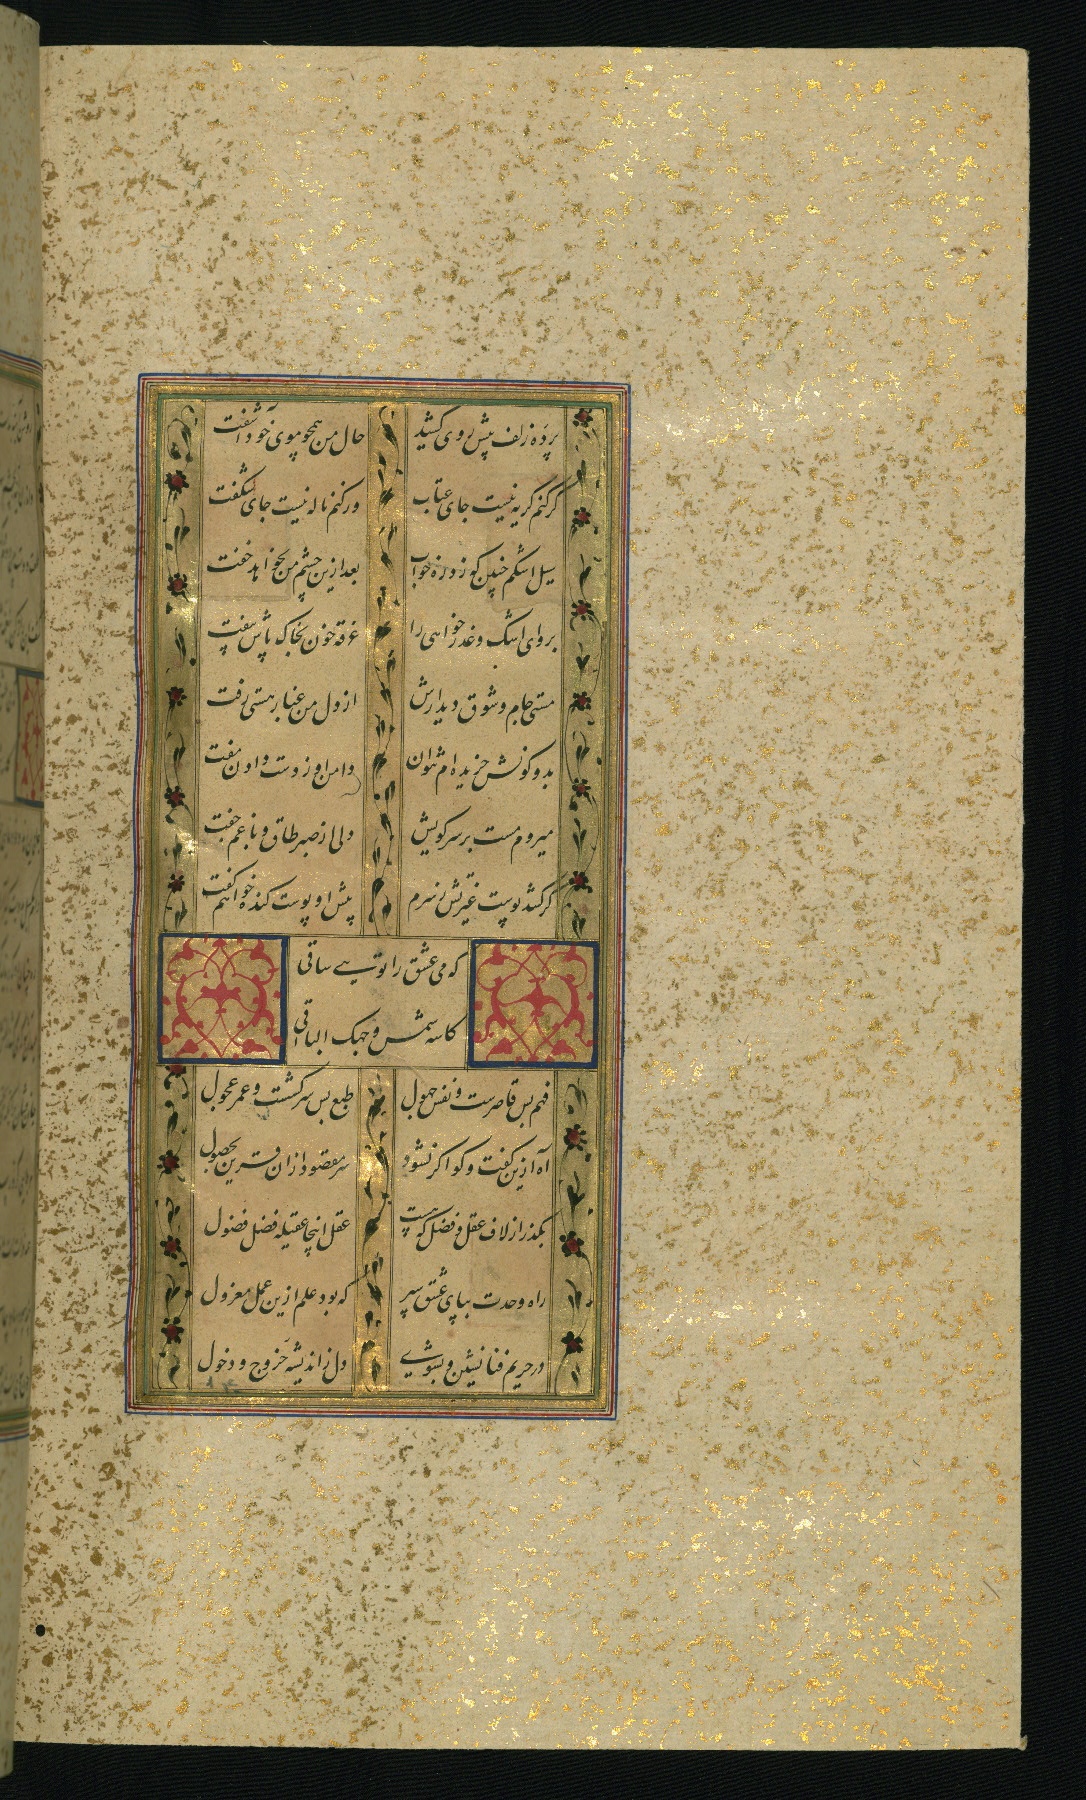 پرده زلف پیش روی کشید حال من همچو موی خود آشفت
گر کنم گریه نیست جای عتاب ور کنم ناله نیست جای شگفت
سیل اشکم چنین که زد ره خواب بعد ازین چشم من نخواهد خفت
برو ای اشک و عذر خواهی را غرقه خون بخاک پاش بیفت
مستی جام و شوق دیدارش از دل من غبار هستی رفت
بدو کونش خریده ام نتوان دامن او ز دست دادن مفت
میروم مست بر سر کویش دلی از صبر طاق و با غم جفت
گر کشد پوست غیرتش ز سرم پیش او پوست کنده خواهم گفت
که می عشق را تویی ساقی
کاسه شمس و جهک الباقی
فهم بس قاصرست و نفس جهول طبع بس سرکشست و عمر عجول
آه ازین گفت و گو اگر نشود سر مقصود ازان قرین حصول
بگذر از لاف عقل و فضل که هست عقل اینجا عقیله فضل فضول
راه وحدت بپای عشق سپر که بود علم ازین عمل معزول
در حریم فنا نشین و بشوی دل ز اندیشه خروج و دخول